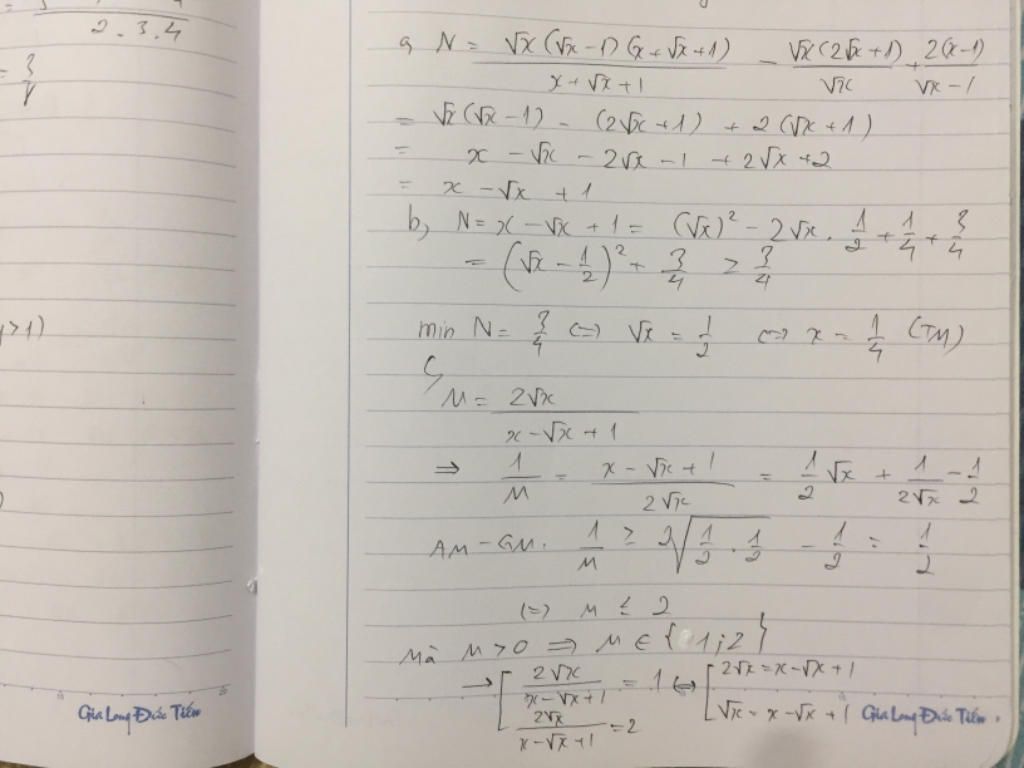 2.3.4
= 3
y>1)
a, N = √x(√x-1)(x+√x+1)/(x+√x+1) - √x(2√x+1)/√x + 2(x-1)/(√x-1)
= √x(√x-1) - (2√x+1) + 2(√x+1)
= x - √x - 2√x - 1 + 2√x + 2
= x - √x + 1
b, N = x - √x + 1 = (√x)² - 2√x . 1/2 + 1/4 + 3/4
= (√x - 1/2)² + 3/4 ≥ 3/4
min N = 3/4 <=> √x = 1/2 <=> x = 1/4 (TM)
c,
M = 2√x/(x - √x + 1)
=> 1/M = (x - √x + 1)/(2√x) = 1/2 √x + 1/(2√x) - 1/2
AM-GM. 1/M ≥ 2√(1/2 . 1/2) - 1/2 = 1/2
(=) M ≤ 2
Mà M > 0 => M ∈ {1;2}
→ [ 2√x/(x - √x + 1) = 1 <=> [ 2√x = x - √x + 1
2√x/(x - √x + 1) = 2 √x = x - √x + 1
Gia Long Đức Tiến
Gia Long Đức Tiến